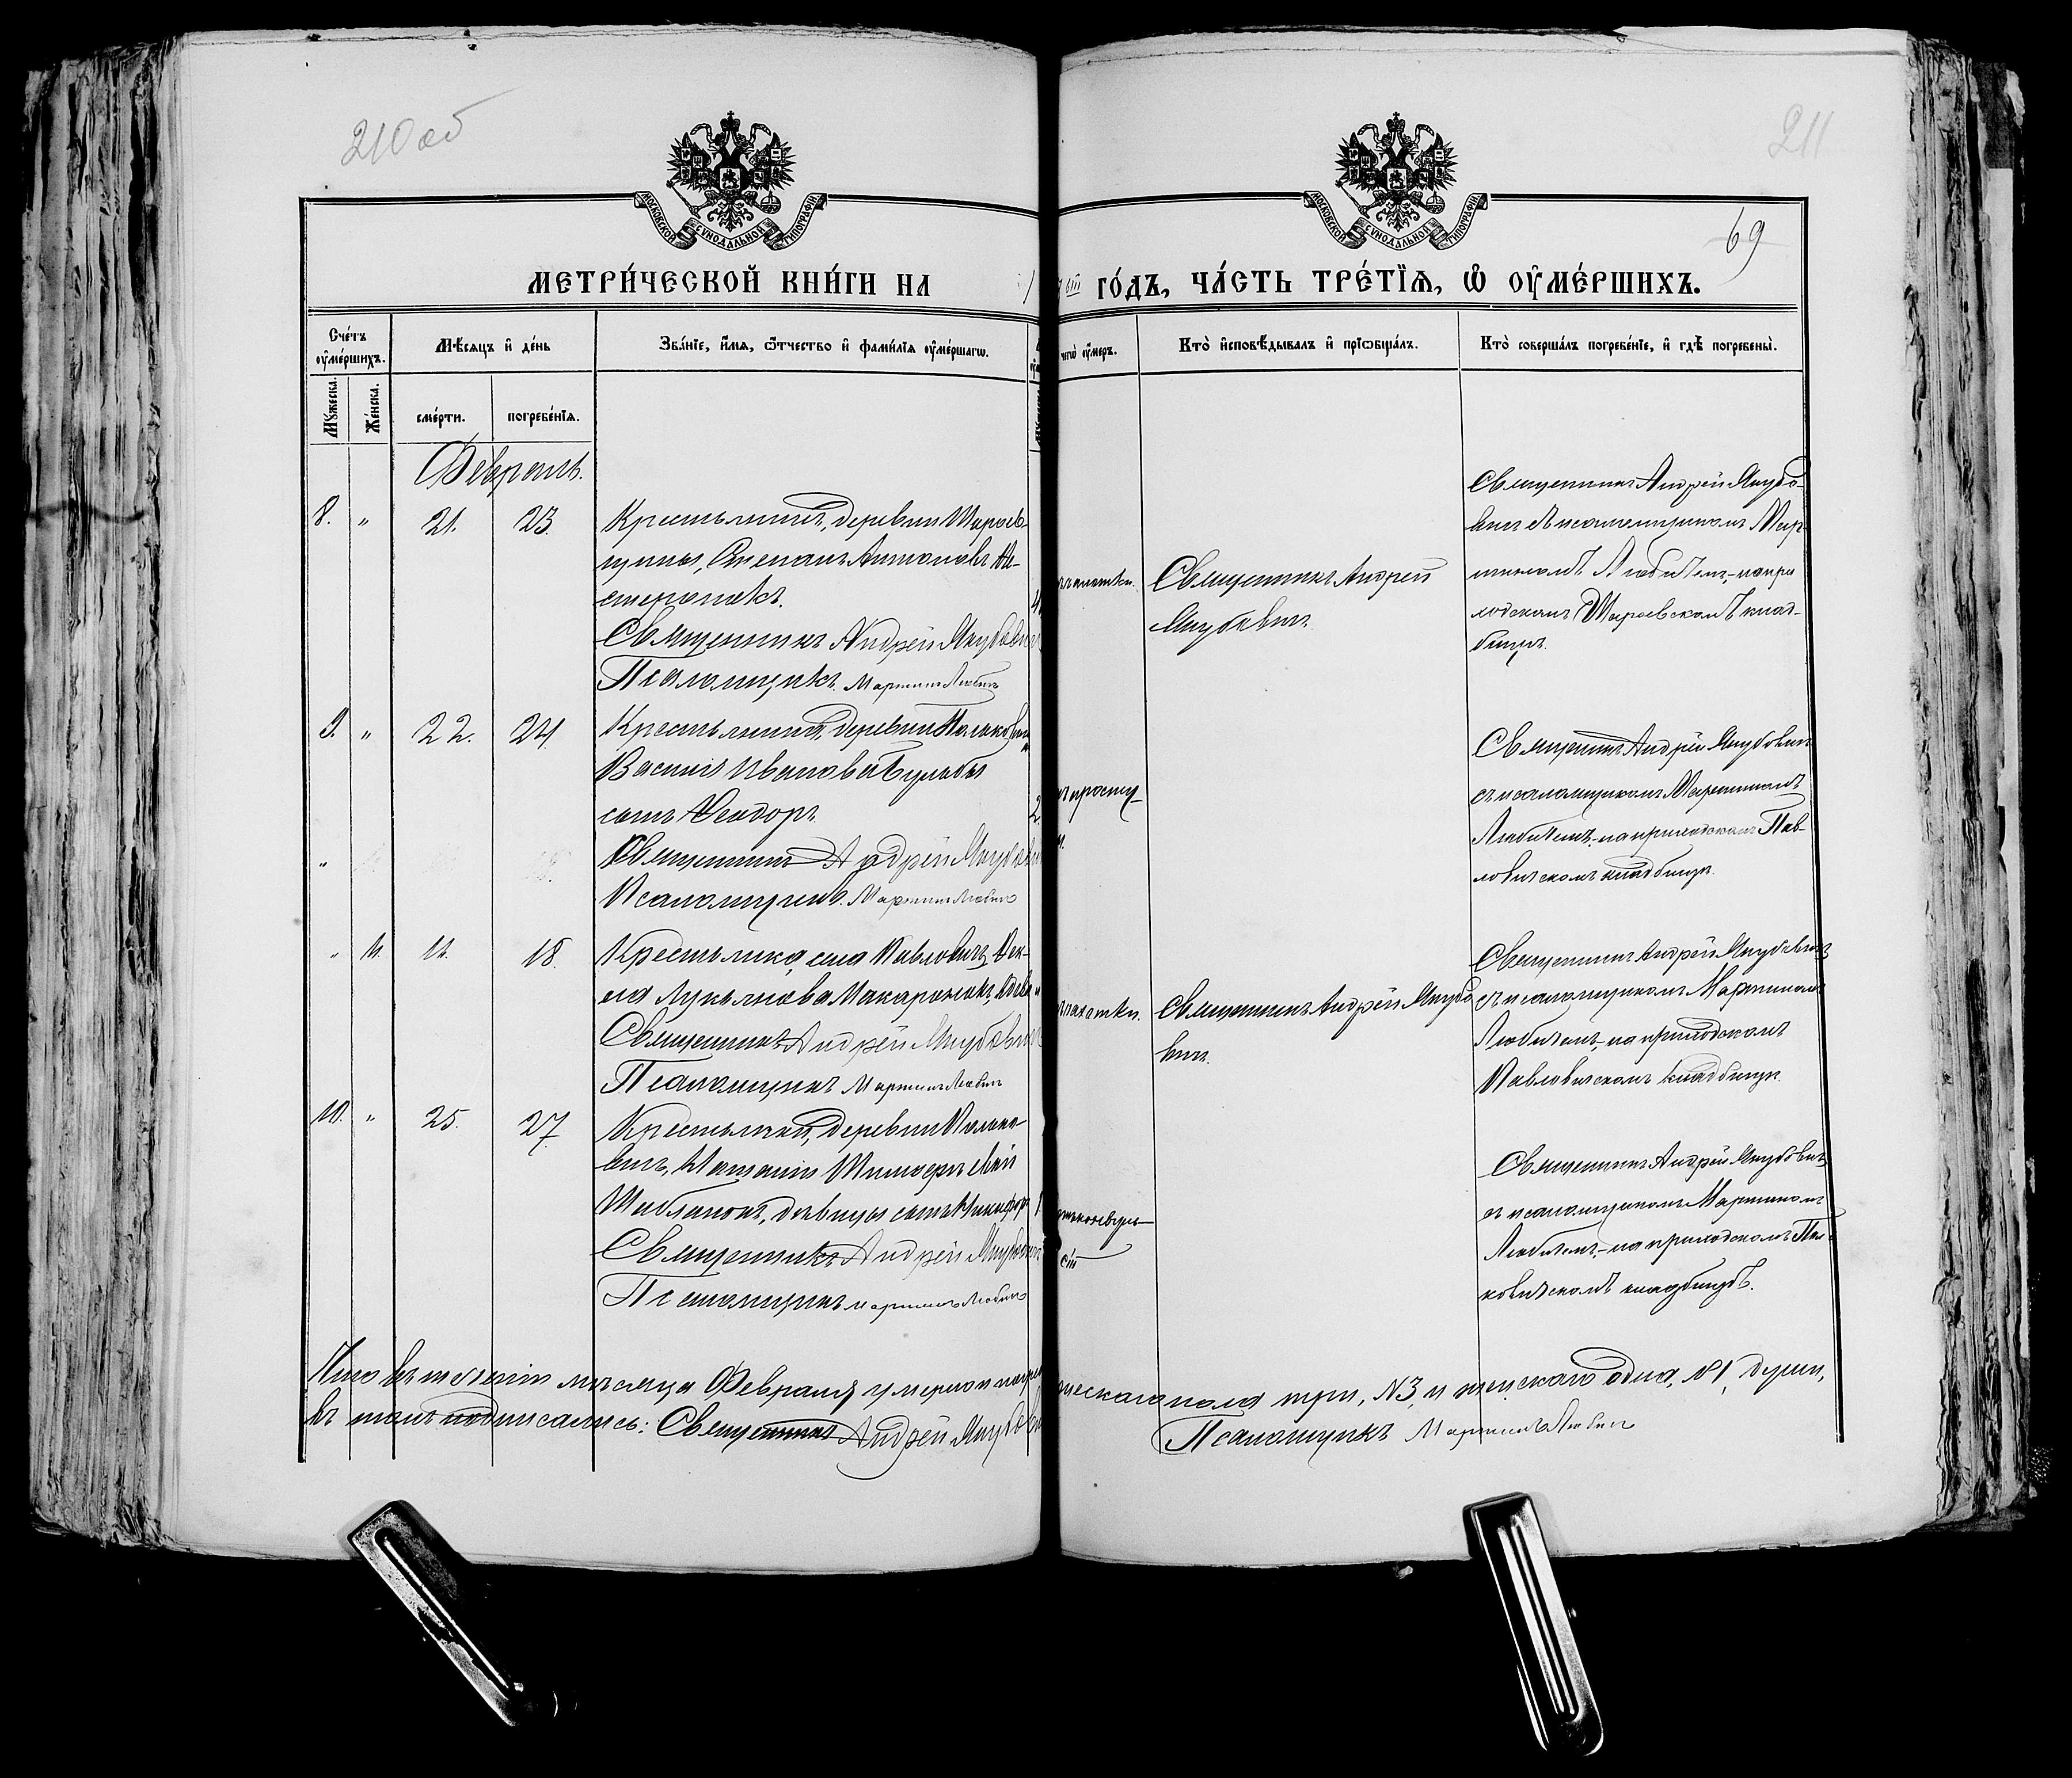 210 об
211
69
МОСКОВСКОЙ СѴНОДАЛЬНОЙ ТИПОГРАФІИ
МОСКОВСКОЙ СѴНОДАЛЬНОЙ ТИПОГРАФІИ
МЕТРИ́ЧЕСКОЙ КНИ́ГИ НА
ГО́ДЪ, ЧА́СТЬ ТРЕ́ТЇѦ, Ѽ ОУ҆МЕ́РШИХЪ.
Сче́тъ оу҆ме́ршихъ.
Мѣ́сѧцъ и҆ де́нь
Зва́нїе, и҆́мѧ, ѻ҆́тчество и҆ фами́лїѧ оу҆ме́ршагѡ.
чегѡ̀ оу҆́меръ.
Кто̀ и҆сповѣ́дывалъ и҆ прїѡбща́лъ.
Кто̀ соверша́лъ погребе́нїе, и҆ гдѣ̀ погребены̀.
Мꙋ́жеска.
Же́нска.
сме́рти.
погребе́нїѧ.
Февраль.
8. " 21. 23.
Крестьянинъ, деревни Шароев-
щины, Степанъ Антоновъ Не-
стеронокъ.
Священникъ Андрей Якубович
Псаломщикъ Мартинъ Любич
чахотки.
Священникъ Андрей
Якубович.
Священникъ Андрей Якубо-
вич с псаломщикомъ Мар-
тиномъ Любичемъ, на при
ходскомъ Шароевскомъ клад-
бищѣ.
9. " 22. 24.
Крестьянина, деревни
Василія Иванова Бульбы
сынъ Ѳеодоръ.
Священникъ Андрей Якубович
Псаломщикъ. Мартинъ Любич
простуды
Священникъ Андрей Якубович
съ псаломщикомъ Мартиномъ
Любичемъ, на приходскомъ Пав-
ловичскомъ кладбищѣ.
" 1. 18.
Крестьянка, села Павловичъ,
Лукьянова Макаронокъ, вдова
Священникъ Андрей Якубович
Псаломщикъ Мартинъ Любич
чахотки.
Священникъ Андрей Якубо
вич.
Священникъ Андрей Якубович
съ псаломщикомъ Мартиномъ
Любичемъ, на приходскомъ
Павловичскомъ кладбищѣ.
10. " 25. 27.
Крестьянки, деревни
вичъ, Наталіи Тимоѳеевой
дѣвицы сынъ Никифоръ
Священникъ Андрей Якубович
Псаломщикъ Мартинъ Любич
Священникъ Андрей Якубович
съ псаломщикомъ Мартиномъ
Любичемъ, на приходскомъ
ковичскомъ кладбищѣ.
Что въ теченіи мѣсяца Февраля умерло мужескаго пола три, №3, и женскаго одна, №1, души,
въ томъ подписались: Священникъ Андрей Якубович
Псаломщикъ Мартинъ Любич